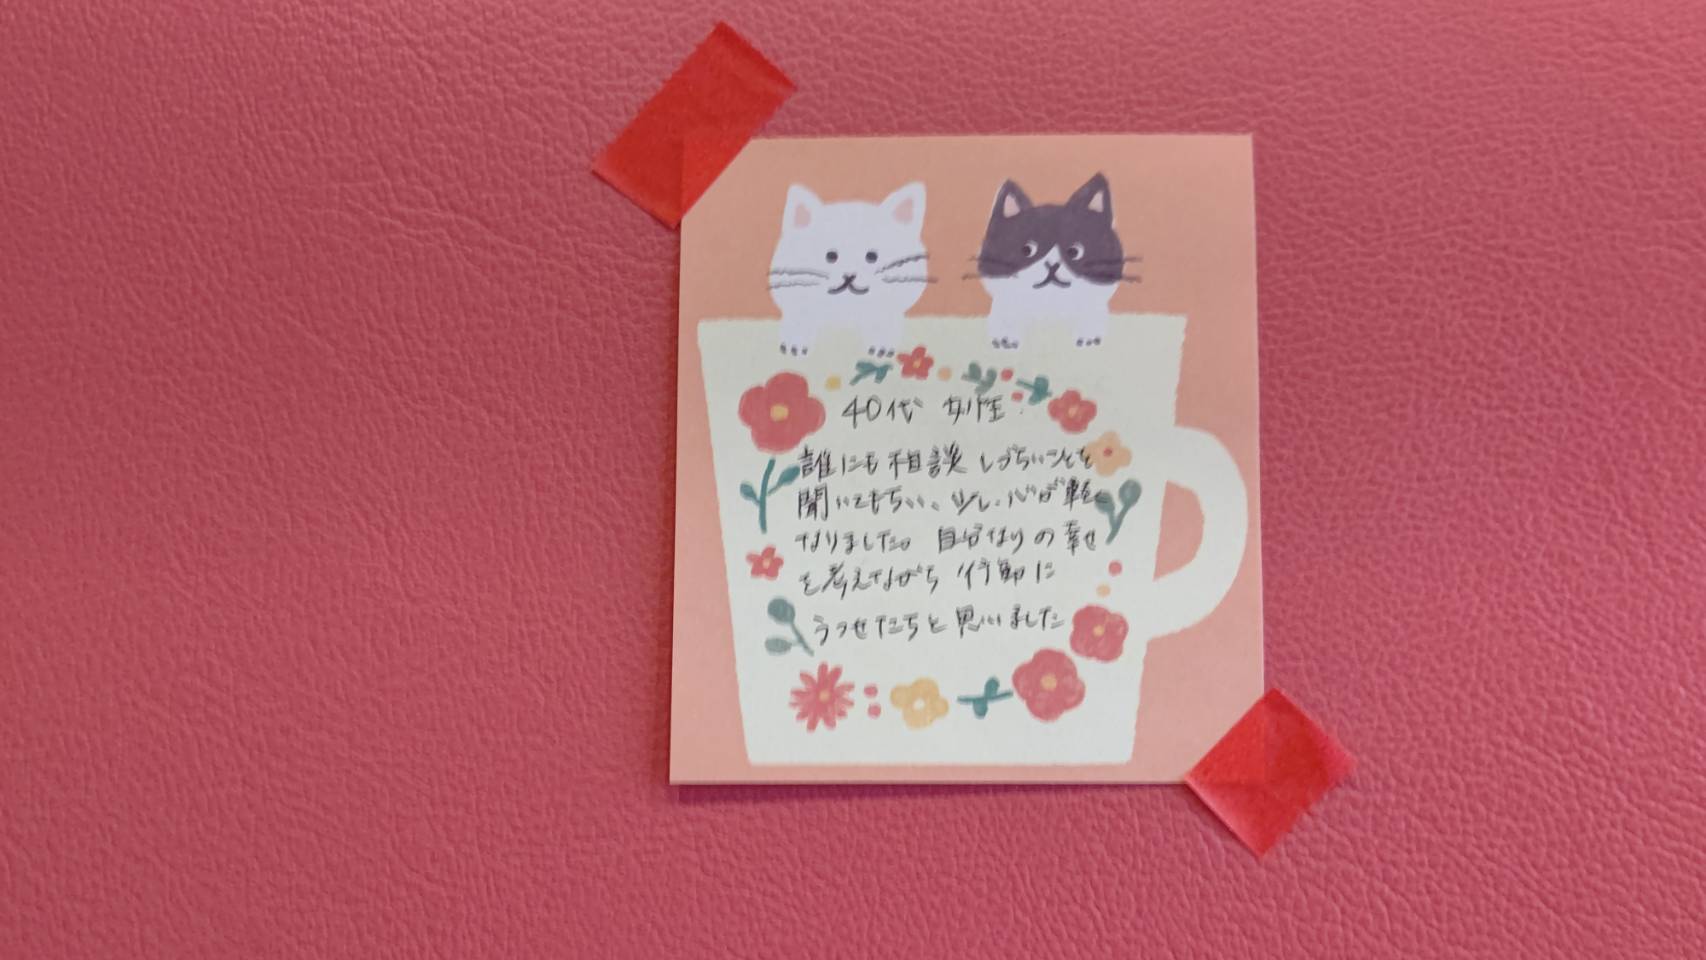 40代 女性
誰にも相談しづらいことを
聞いてもらい、少し心が軽く
なりました。自分なりの幸せ
を考えながら 行動に
うつせたらと思いました